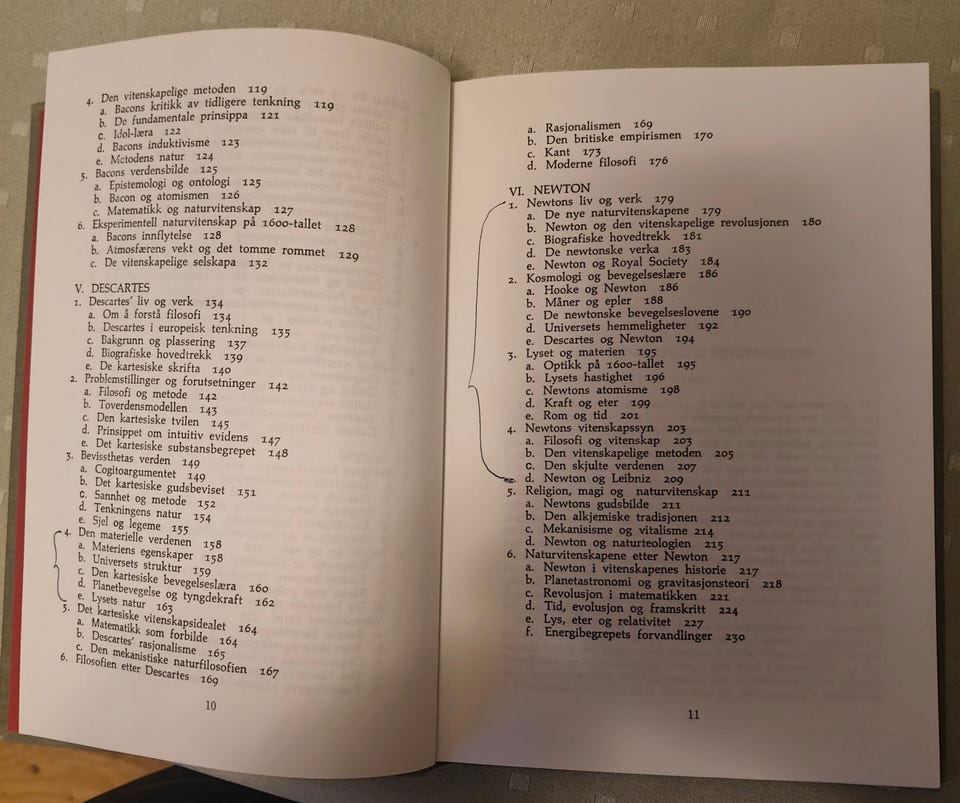 4. Den vitenskapelige metoden 119
a. Bacons kritikk av tidligere tenkning 119
b. De fundamentale prinsippa 121
c. Idol-læra 122
d. Bacons induktivisme 123
e. Metodens natur 124
5. Bacons verdensbilde 125
a. Epistemologi og ontologi 125
b. Bacon og atomismen 126
c. Matematikk og naturvitenskap 127
6. Eksperimentell naturvitenskap på 1600-tallet 128
a. Bacons innflytelse 128
b. Atmosfærens vekt og det tomme rommet 129
c. De vitenskapelige selskapa 132
V. DESCARTES
1. Descartes' liv og verk 134
a. Om å forstå filosofi 134
b. Descartes i europeisk tenkning 135
c. Bakgrunn og plassering 137
d. Biografiske hovedtrekk 139
e. De kartesiske skrifta 140
2. Problemstillinger og forutsetninger 142
a. Filosofi og metode 142
b. Toverdensmodellen 143
c. Den kartesiske tvilen 145
d. Prinsippet om intuitiv evidens 147
e. Det kartesiske substansbegrepet 148
3. Bevissthetas verden 149
a. Cogitoargumentet 149
b. Det kartesiske gudsbeviset 151
c. Sannhet og metode 152
d. Tenkningens natur 154
e. Sjel og legeme 155
4. Den materielle verden 158
a. Materiens egenskaper 158
b. Universets struktur 159
c. Den kartesiske bevegelseslæra 160
d. Planetbevegelse og tyngdekraft 162
e. Lysets natur 163
5. Det kartesiske vitenskapsidealet 164
a. Matematikk som forbilde 164
b. Descartes' rasjonalisme 165
c. Den mekanistiske naturfilosofien 167
6. Filosofien etter Descartes 169
10
a. Rasjonalismen 169
b. Den britiske empirismen 170
c. Kant 173
d. Moderne filosofi 176
VI. NEWTON
1. Newtons liv og verk 179
a. De nye naturvitenskapene 179
b. Newton og den vitenskapelige revolusjonen 180
c. Biografiske hovedtrekk 181
d. De newtonske verka 183
e. Newton og Royal Society 184
2. Kosmologi og bevegelseslære 186
a. Hooke og Newton 186
b. Måner og epler 188
c. De newtonske bevegelseslovene 190
d. Universets hemmeligheter 192
e. Descartes og Newton 194
3. Lyset og materien 195
a. Optikk på 1600-tallet 195
b. Lysets hastighet 196
c. Newtons atomisme 198
d. Kraft og eter 199
e. Rom og tid 201
4. Newtons vitenskapssyn 203
a. Filosofi og vitenskap 203
b. Den vitenskapelige metoden 205
c. Den skjulte verdenen 207
d. Newton og Leibniz 209
5. Religion, magi og naturvitenskap 211
a. Newtons gudsbilde 211
b. Den alkjemiske tradisjonen 212
c. Mekanisisme og vitalisme 214
d. Newton og naturteologien 215
6. Naturvitenskapene etter Newton 217
a. Newton i vitenskapenes historie 217
b. Planetastronomi og gravitasjonsteori 218
c. Revolusjon i matematikken 221
d. Tid, evolusjon og framskritt 224
e. Lys, eter og relativitet 227
f. Energibegrepets forvandlinger 230
11